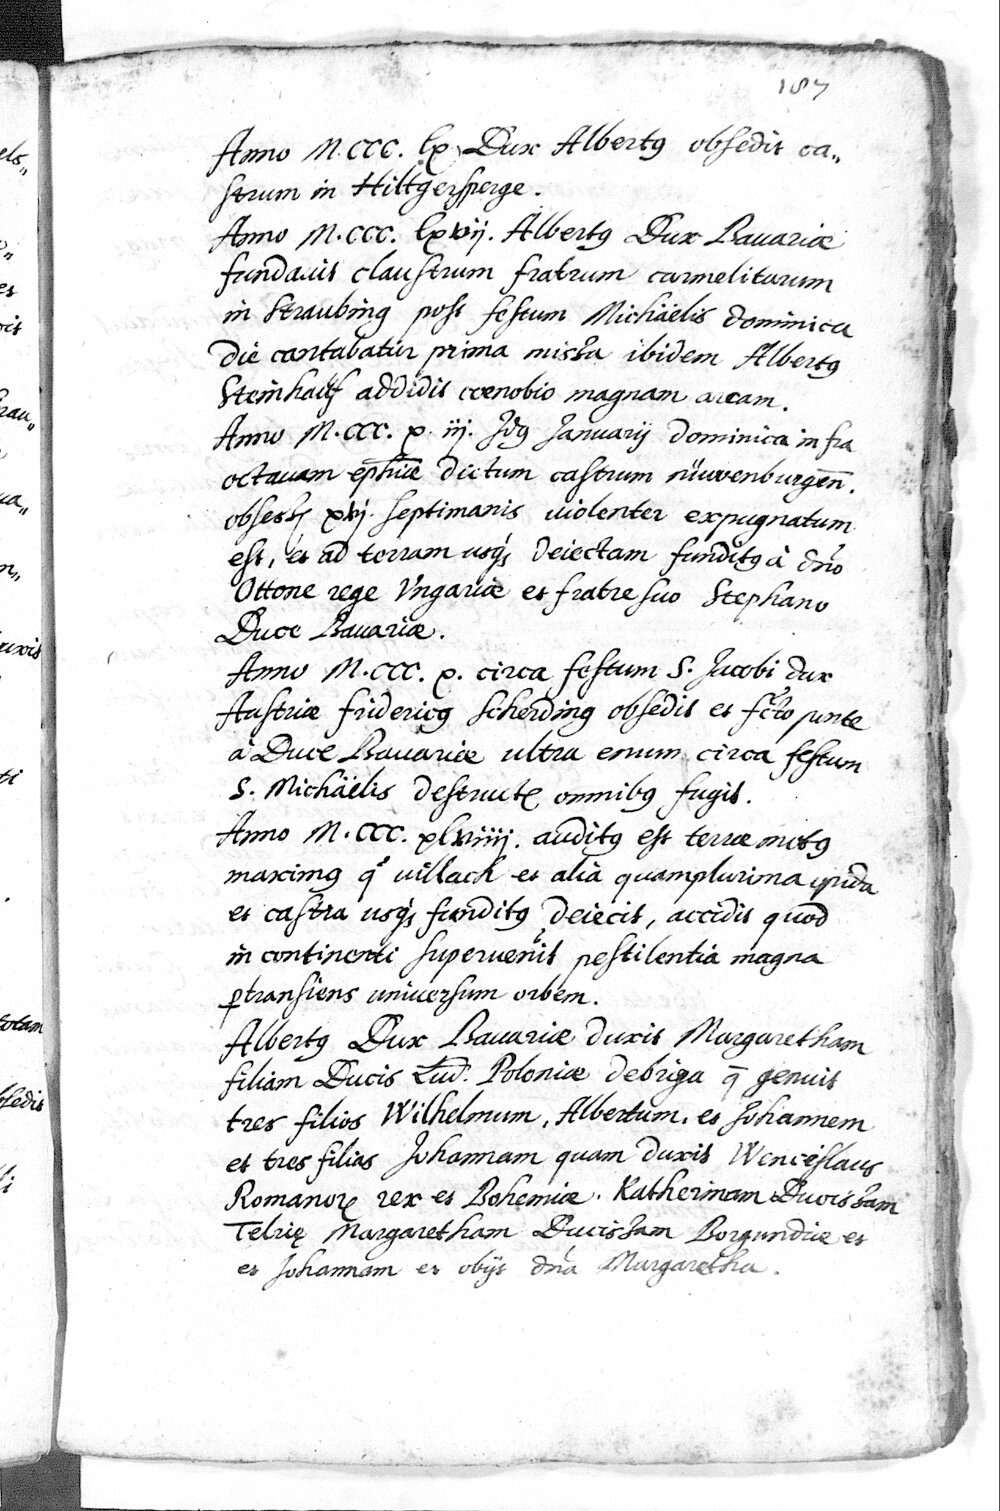 187
Anno M.CCC. lx. Dux Albertꝰ obsedit ca„
strum in Hiltgersperge.
Anno M.CCC. lxvij. Albertꝰ Dux Bauariæ
fundauit claustrum fratrum carmelitarum
in Straubing post festum Michäelis dominica
die cantabatur prima missa ibidem Albertꝰ
Steinhauf addidit coenobio magnam aream.
Anno M.CCC. x. iij. Idꝰ Januarij dominica infra
octauam ephiæ dictum castrum nüwenburgen̄.
obsess xvj. septimanis uiolenter expugnatum
est, et ad terram usqꝫ deiectam funditꝰ à dno
Ottone rege Vngariæ et fratre suo Stephano
Duce Bauariæ.
Anno M.CCC. x. circa festum S. Jacobi dux
Austriæ fridericꝰ Scherding obsedit et fcto ponte
à Duce Bauariæ ultra enum circa festum
S. Michäelis destructꝭ omnibꝰ fugit.
Anno M.CCC. xlviiij. auditꝰ est terræ motꝰ
maximꝰ q uillach et alia quamplurima opida
et castra usqꝫ funditꝰ deiecit, accidit quod
in continenti superuenit pestilentia magna
ꝑtransiens uniuersum orbem.
Albertꝰ Dux Bauariæ duxit Margaretham
filiam Ducis Lud. Poloniæ debriga q̄ genuit
tres filios Wilhelmum, Albertum, et Johannem
et tres filias Johannam quam duxit Wenceslaus
Romanorꝫ rex et Bohemiæ. Katherinam Ducissam
Telrię Margaretham Ducissam Borgundiæ et
et Johannam et obijt dna Margaretha.
els„
o„
et
cit
frau„
ua„
n„
ruxis
ti
totam
bsedit